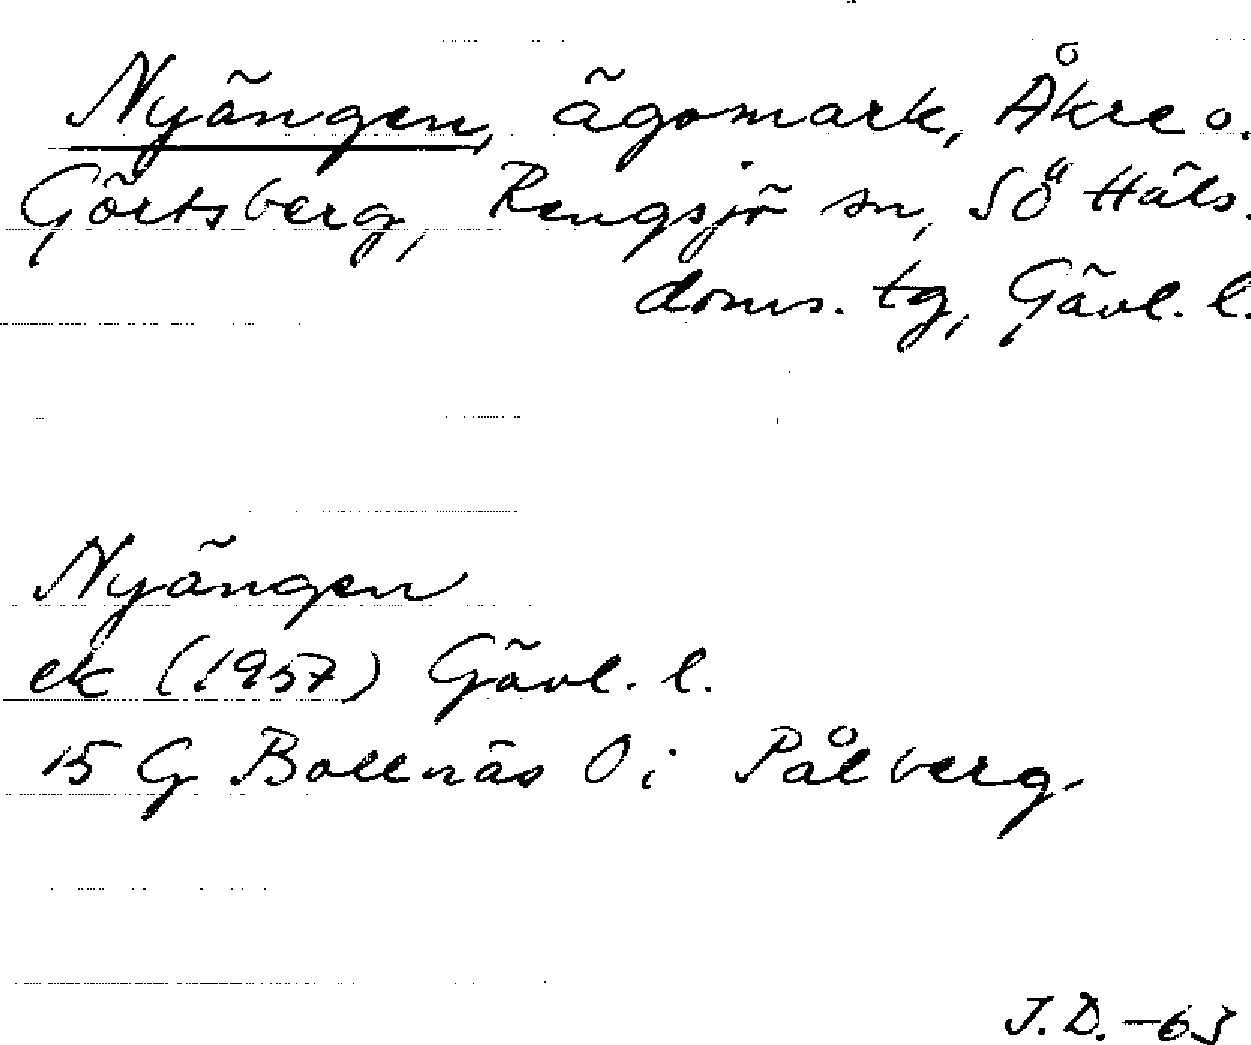 Nyängen, ägomark, Åkre o.
Görtsberg, Rengsjö sn, SÖ Häls.
doms. tg, Gävl. l.
Nyängen
ek (1957) Gävl. l.
15 G Bollnäs O i Pålberg.
J.D. -63